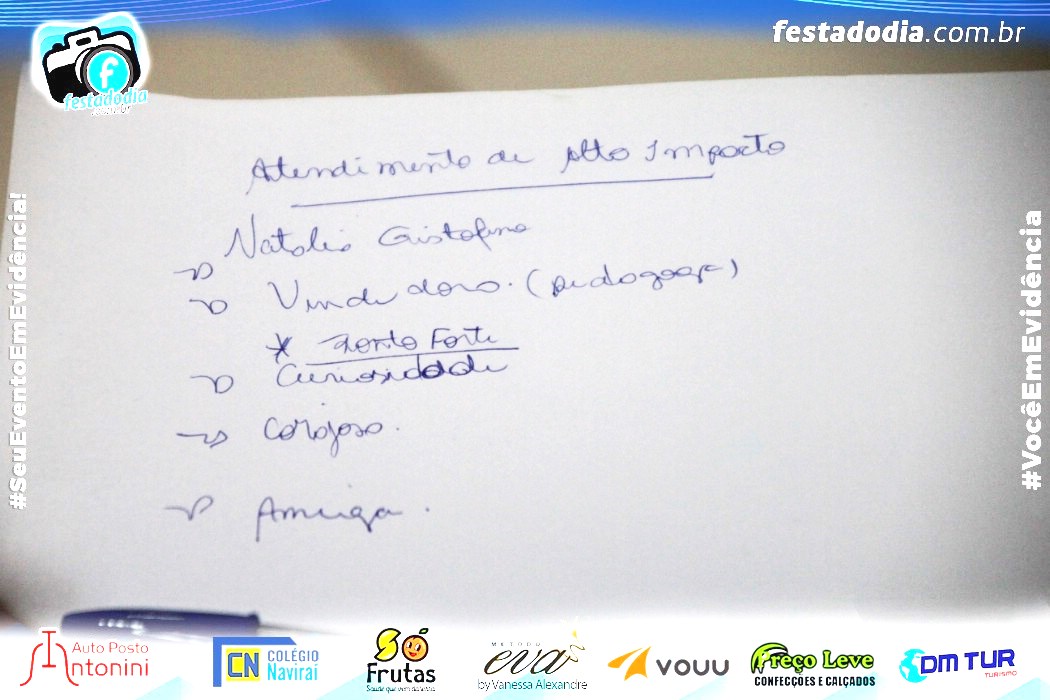 festadodia.com.br
f
festadodia
.com.br
#SeuEventoEmEvidência!
#VocêEmEvidência
Atendimento de Alto Impacto
Natalia Cristofano
Vendedora. (pedagoga)
* Ponto Forte
Curiosidade
Corajosa.
Amiga.
Auto Posto
Antonini
CN COLÉGIO
Naviraí
SÓ
Frutas
MÉTODO
eva
by Vanessa Alexandre
VOUU
Preço Leve
CONFECÇÕES E CALÇADOS
DM TUR
TURISMO